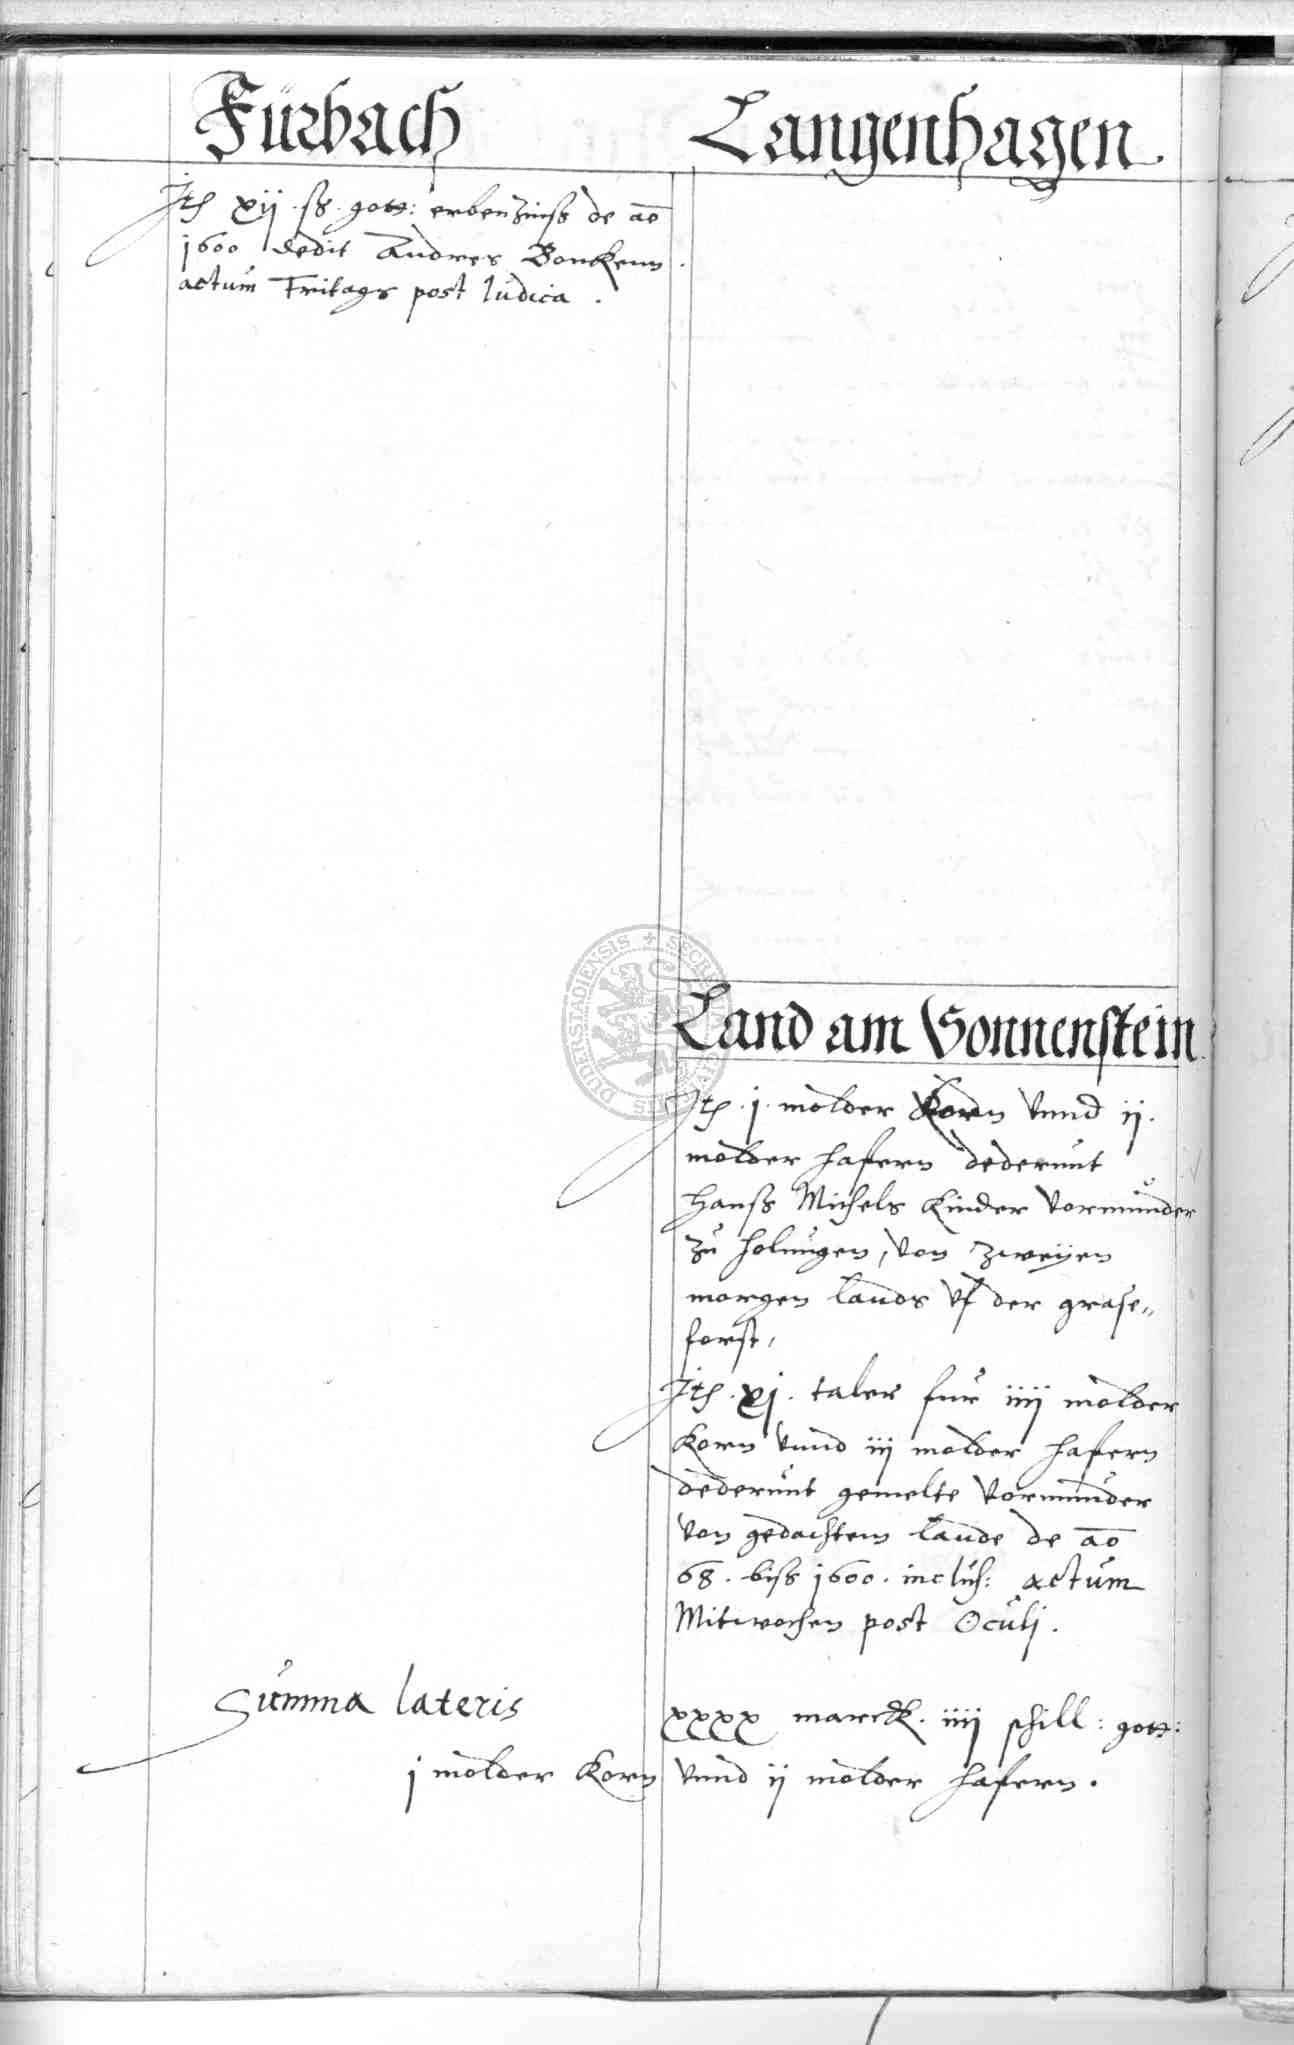 Fürbach
Itˀ xij ß gott: erbenzinß de ao
1600 dedit Andres Bonckenn
actum Fritags post Iudica .
Langenhagen
Land am Sonnenstein
Itˀ . j . molder Korn vnnd ij .
molder hafern dederunt
Hanß Michels Kinder vormunder
zu Holungen, von zweyen
morgen lands vf der grase„
forst,
Itˀ . xj . taler fur iiij molder
Korn vnnd iij molder hafern
dederunt gemelte vormunder
von gedachtem lande de ao
68 . biß 1600 . inclus: actum
Mitwochen post Oculi .
Summa lateris xxxx marck . iiij schill : gott:
j molder Korn vnnd ij molder hafern .
DUDERSTADIENSIS + SECRETUM CIVITATIS